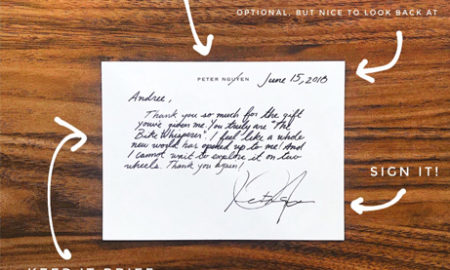 OPTIONAL, BUT NICE TO LOOK BACK AT
PETER NGUYEN June 15, 2018
Andree,
Thank you so much for the gift
you've given me. You truly are "The
Bike Whisperer". I feel like a whole
new world has opened up to me! And
I cannot wait to explore it on two
wheels. Thank you again!
SIGN IT!
KEEP IT BRIEF